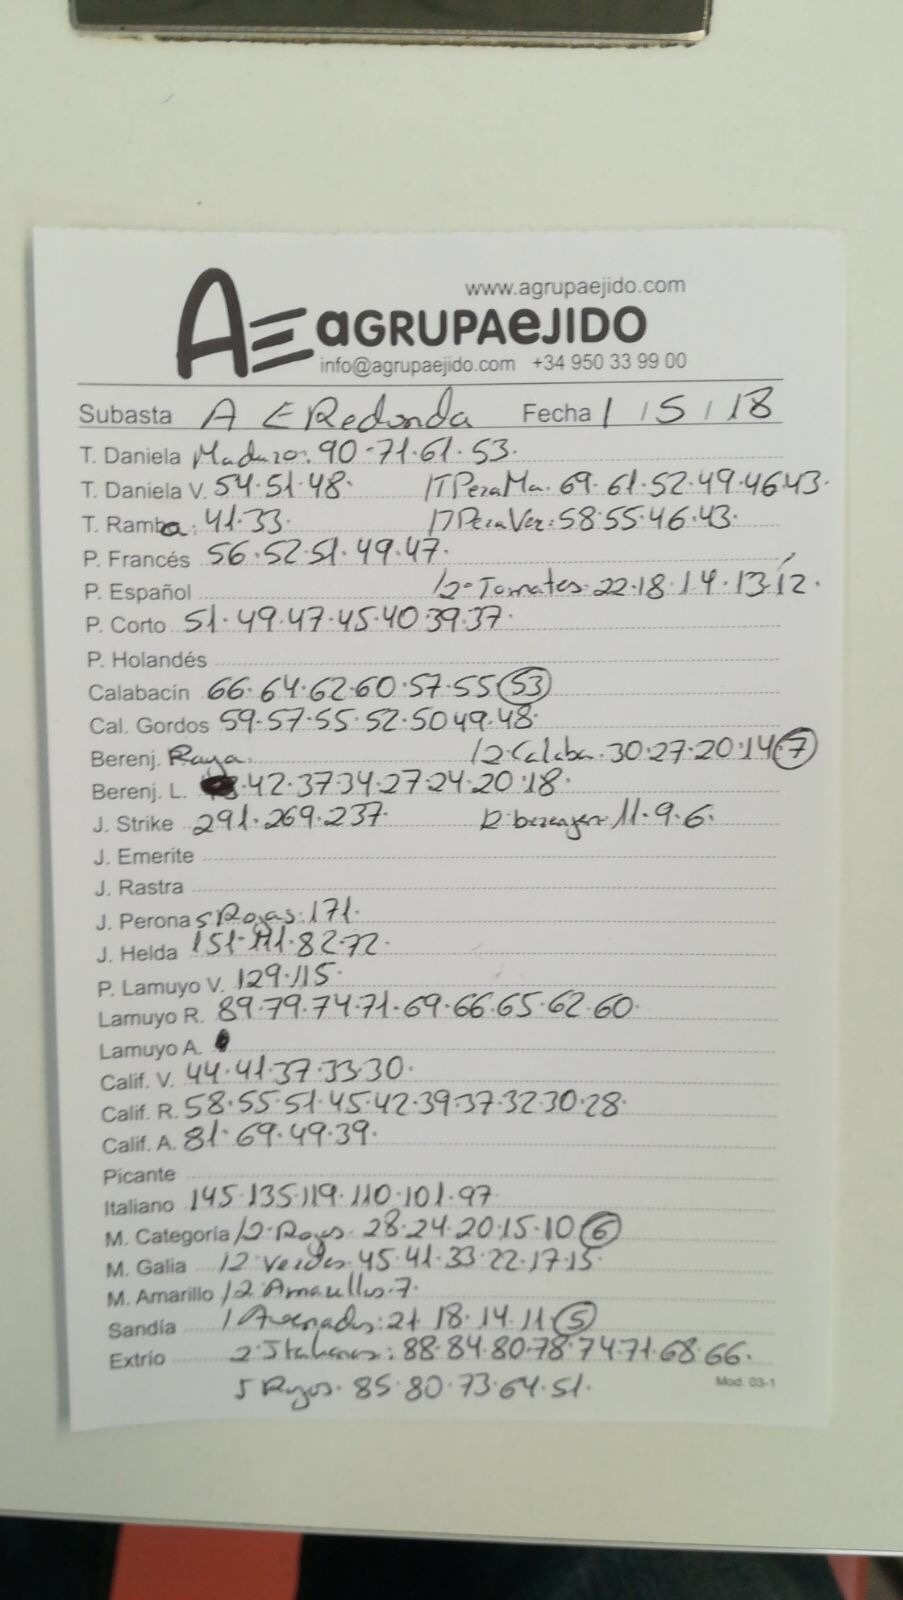 www.agrupaejido.com
AE aGRUPAeJIDO
info@agrupaejido.com +34 950 33 99 00
Subasta A E Redonda Fecha 1 / 5 / 18
T. Daniela Maduro: 90·71·61·53·
T. Daniela V. 54·51·48· 1T Pera Ma. 69·61·52·49·46·43·
T. Ramba: 41·33· 17 Pera Ver: 58·55·46·43·
P. Francés 56·52·51·49·47·
P. Español 12· Tomates: 22·18·14·13·12·
P. Corto 51·49·47·45·40·39·37·
P. Holandés
Calabacín 66·64·62·60·57·55 53
Cal. Gordos 59·57·55·52·50 49·48·
Berenj. Raya. 12·Calaba·30·27·20·14·7
Berenj. L. ·42·37·34·27·24·20·18·
J. Strike 291·269·237· 12·berenjen: 11·9·6·
J. Emerite
J. Rastra
J. Perona 5 Rojas: 171·
J. Helda 151·111·82·72·
P. Lamuyo V. 129·115·
Lamuyo R. 89·79·74·71·69·66·65·62·60·
Lamuyo A.
Calif. V. 44·41·37·33·30·
Calif. R. 58·55·51·45·42·39·37·32·30·28·
Calif. A. 81·69·49·39·
Picante
Italiano 145·135·119·110·101·97·
M. Categoría 12·Rojos· 28·24·20·15·10 6
M. Galia 12 Verdes· 45·41·33·22·17·15·
M. Amarillo 12 Amarillos·7·
Sandía 21 18·14·11 5
Extrío 2·Italianos: 88·84·80·78·74·71·68·66·
5 Rojos· 85·80·73·64·51·
Mod. 03-1